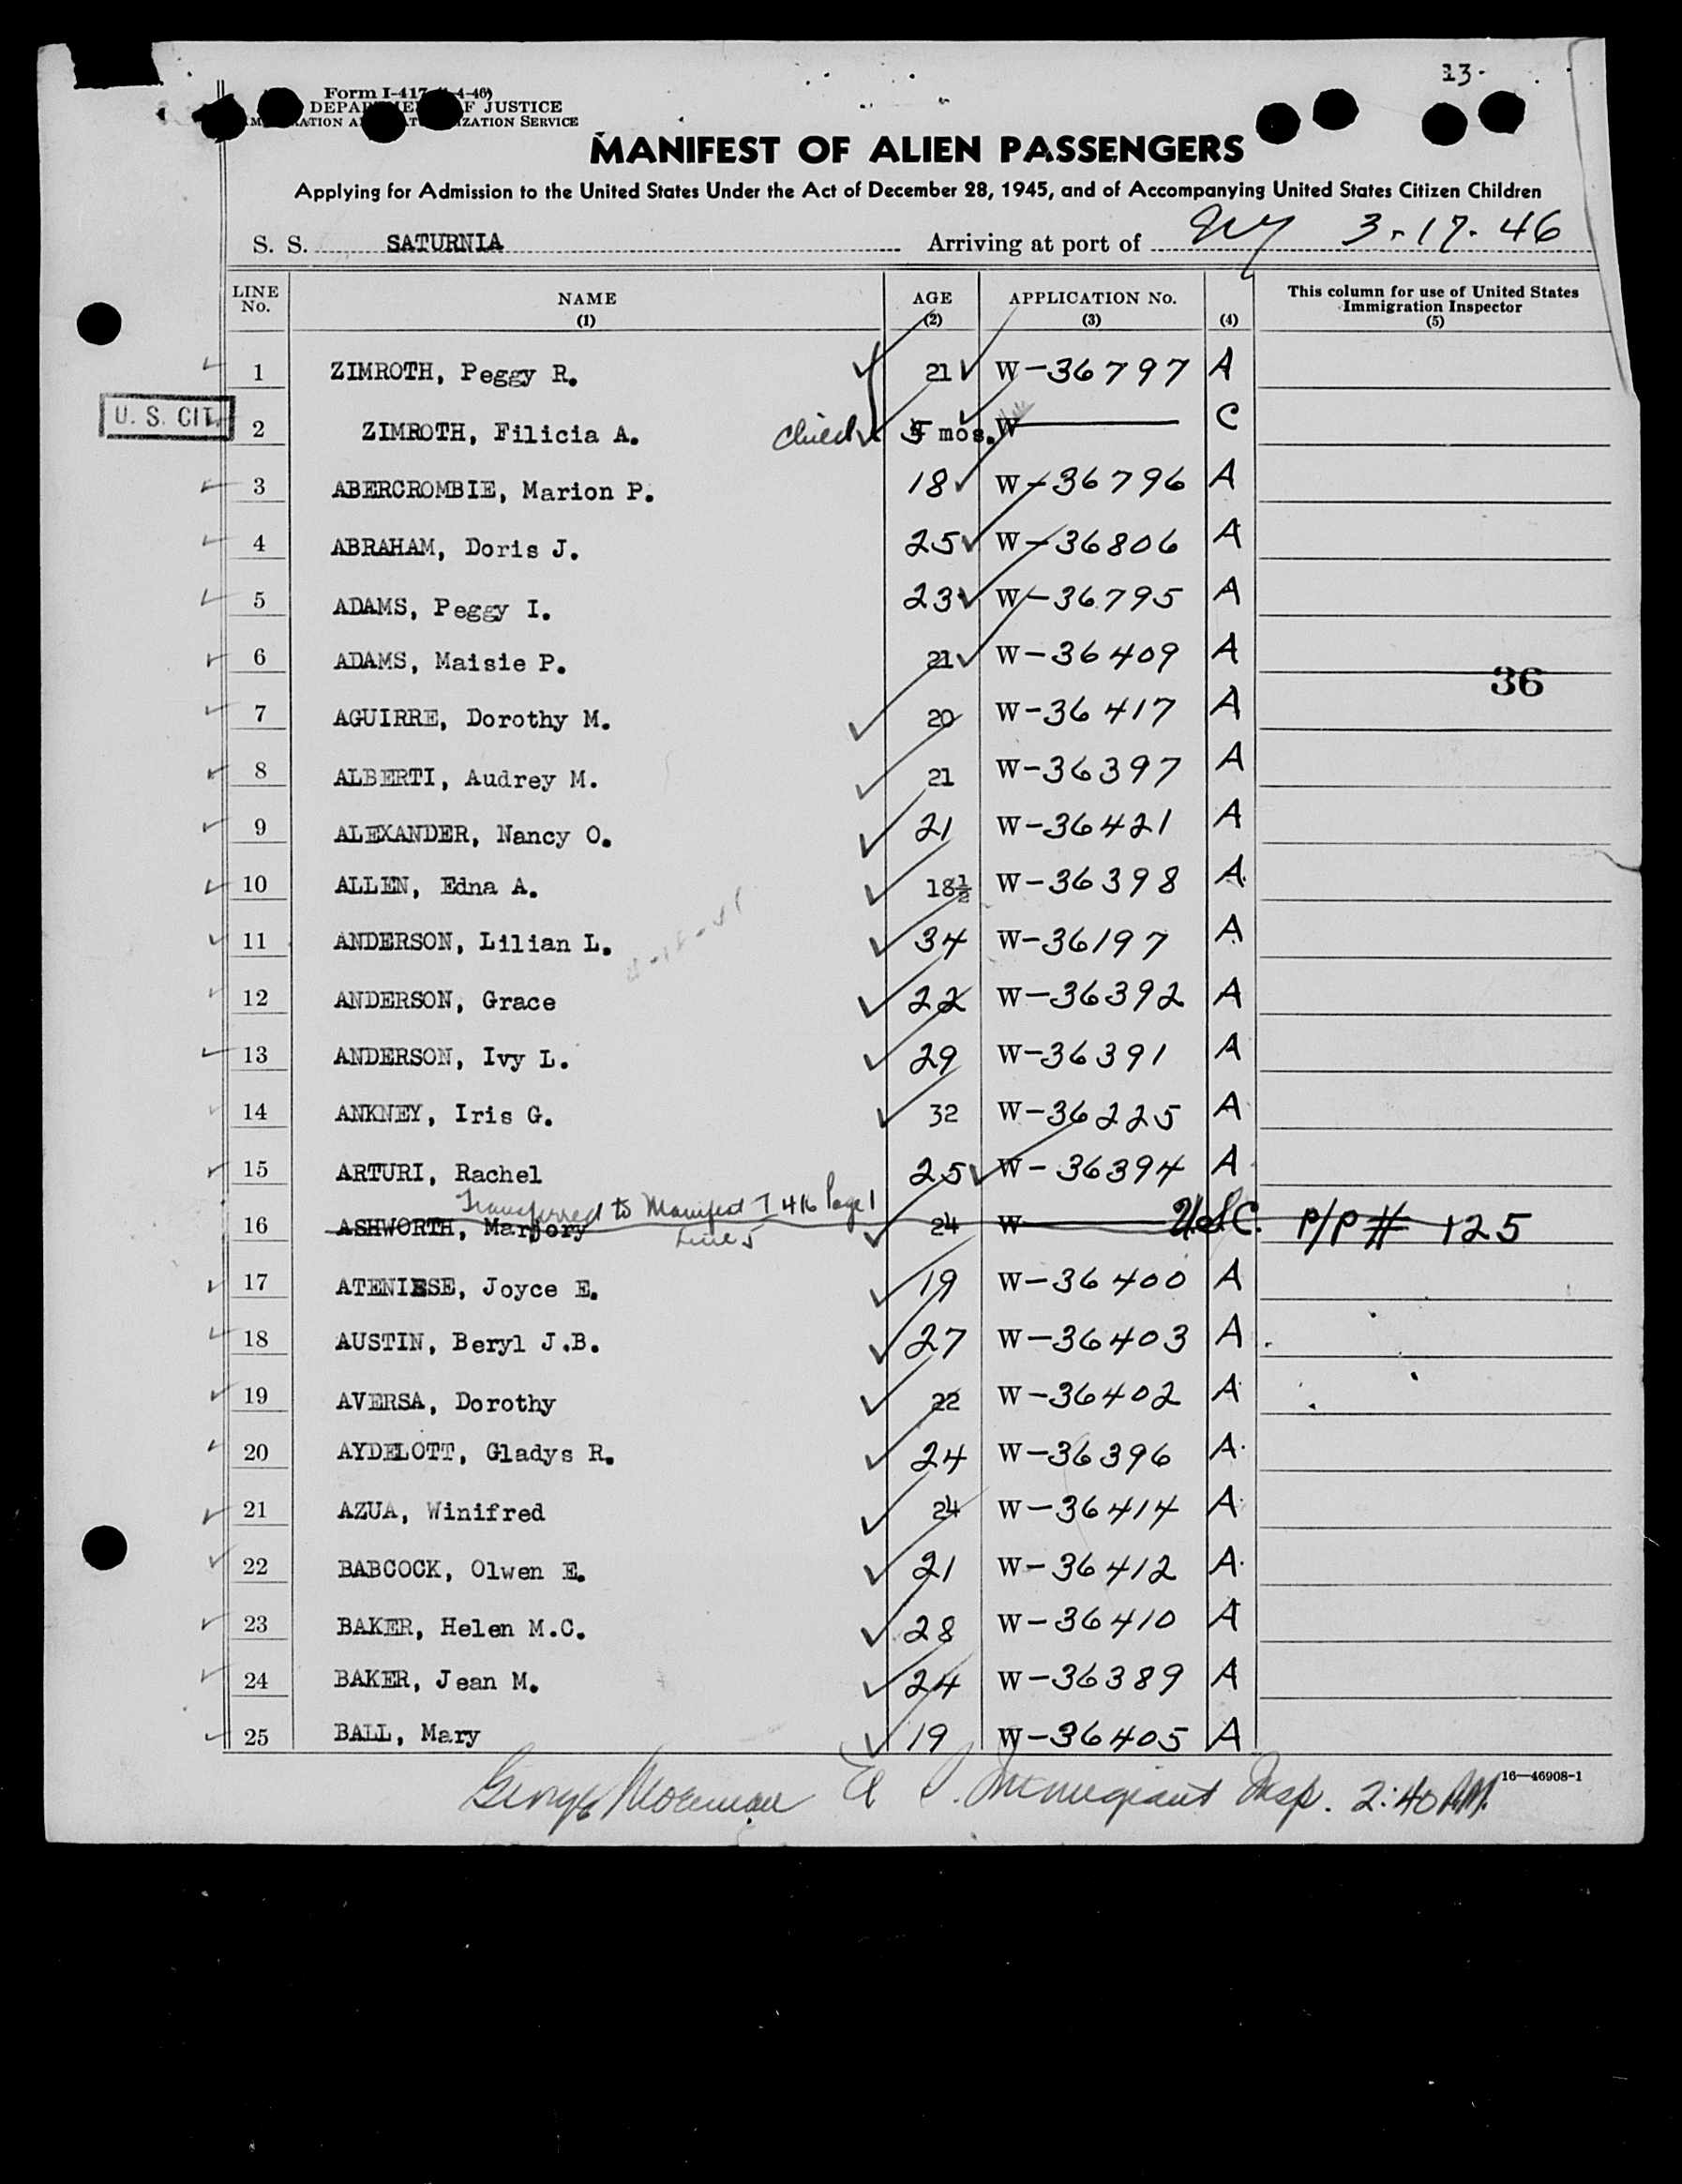 13.
Form I-417 4-46)
DEPA F JUSTICE
ZATION SERVICE
MANIFEST OF ALIEN PASSENGERS
Applying for Admission to the United States Under the Act of December 28, 1945, and of Accompanying United States Citizen Children
S. S. SATURNIA Arriving at port of NY 3-17-46
LINE No. NAME (1) AGE (2) APPLICATION No. (3) (4) This column for use of United States Immigration Inspector (5)
1 ZIMROTH, Peggy R. 21 W-36797 A
U. S. CIT. 2 ZIMROTH, Filicia A. child 5 mos. W C
3 ABERCROMBIE, Marion P. 18 W-36796 A
4 ABRAHAM, Doris J. 25 W-36806 A
5 ADAMS, Peggy I. 23 W-36795 A
6 ADAMS, Maisie P. 21 W-36409 A
36
7 AGUIRRE, Dorothy M. 20 W-36417 A
8 ALBERTI, Audrey M. 21 W-36397 A
9 ALEXANDER, Nancy O. 21 W-36421 A
10 ALLEN, Edna A. 18½ W-36398 A
11 ANDERSON, Lilian L. 34 W-36197 A
12 ANDERSON, Grace 22 W-36392 A
13 ANDERSON, Ivy L. 29 W-36391 A
14 ANKNEY, Iris G. 32 W-36225 A
15 ARTURI, Rachel 25 W-36394 A
Transferred to Manifest I 416 Page 1
16 ASHWORTH, Marjory 24 W USC. P/P # 125
Line 5
17 ATENIESE, Joyce E. 19 W-36400 A
18 AUSTIN, Beryl J.B. 27 W-36403 A
19 AVERSA, Dorothy 22 W-36402 A
20 AYDELOTT, Gladys R. 24 W-36396 A
21 AZUA, Winifred 24 W-36414 A
22 BABCOCK, Olwen E. 21 W-36412 A
23 BAKER, Helen M.C. 28 W-36410 A
24 BAKER, Jean M. 24 W-36389 A
25 BALL, Mary 19 W-36405 A
16—46908-1
George S. Immigrant Insp. 2:40 P.M.